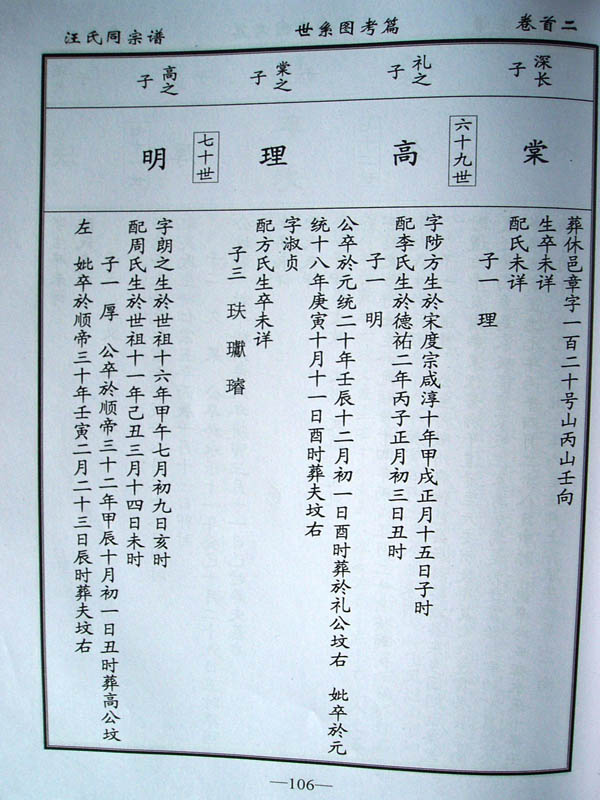 卷首二
世系图考篇
汪氏同宗谱
深长子
礼之子
棠之子
高之子
棠
六十九世
高
理
七十世
明
葬休邑章字一百二十号山丙山壬向
生卒未详
配氏未详
子一 理
字陟方生於宋度宗咸淳十年甲戌正月十五日子时
配李氏生於德祐二年丙子正月初三日丑时
子一 明
公卒於元统二十年壬辰十二月初一日酉时葬於礼公坟右 妣卒於元
统十八年庚寅十月十一日酉时葬夫坟右
字淑贞
配方氏生卒未详
子三 玞 瓛 璿
字朗之生於世祖十六年甲午七月初九日亥时
配周氏生於世祖十一年己丑三月十四日未时
子一 厚 公卒於顺帝三十二年甲辰十月初一日丑时葬高公坟
左 妣卒於顺帝三十年壬寅二月二十三日辰时葬夫坟右
—106—